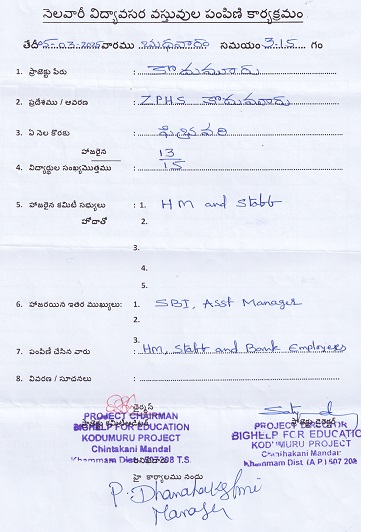 నెలవారీ విద్యావసర వస్తువుల పంపిణి కార్యక్రమం
తేదీ 05-03-2025 వారము బుధవారం సమయం 3:15 గం
1. ప్రాజెక్టు పేరు : కొదుమూరు
2. ప్రదేశము / ఆవరణ : ZPHS కొదుమూరు
3. ఏ నెల కొరకు : ఫిబ్రవరి
హాజరైన 13
4. విద్యార్థుల సంఖ్యమొత్తము : 15
5. హాజరైన కమిటీ సభ్యులు : 1. HM and Staff
హోదాతో 2.
3.
4.
5.
6. హాజరయిన ఇతర ముఖ్యులు: 1. SBI, Asst Manager
2.
3.
7. పంపిణి చేసిన వారు : HM, Staff and Bank Employees
8. వివరణ / సూచనలు :
PROJECT CHAIRMAN
BIGHELP FOR EDUCATION
KODUMURU PROJECT
Chintakani Mandal
Khammam Dist. 507208 T.S.
PROJECT DIRECTOR
BIGHELP FOR EDUCATIO
KODUMURU PROJECT
Chinthakani Mandal
Khammam Dist (A.P.) 507 208
పై కార్యాలము నందు
Manager